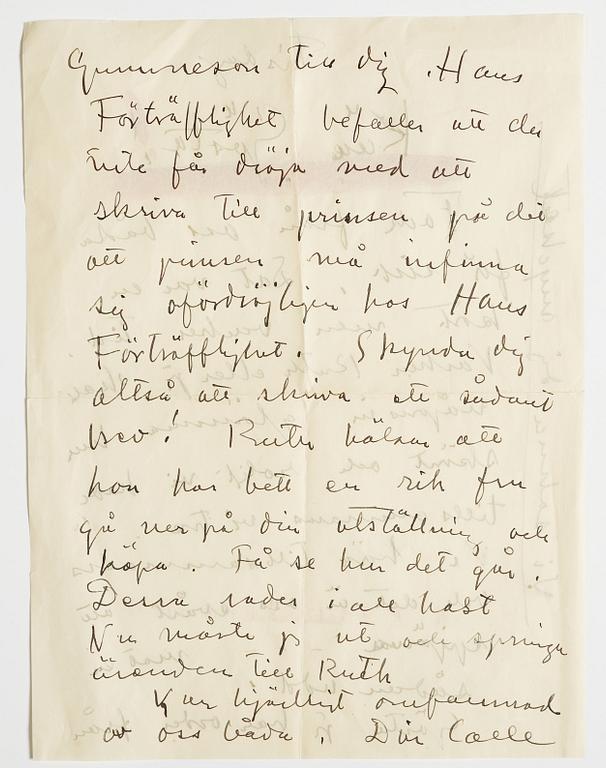 Gunneson till dig. Hans
Förträfflighet befaller att du
inte får dröja med att
skriva till prinsen på det
att prinsen må infinna
sig ofördröjligen hos Hans
Förträfflighet. Skynda dig
alltså att skriva ett sådant
brev! Ruth hälsar att
hon har bett en rik fru
gå ner på din utställning och
köpa. Få se hur det går.
Dessa rader i all hast
Nu måste jg ut och springa
ärenden till Ruth
Var hjärtligt omfamnad
av oss båda. Din Calle